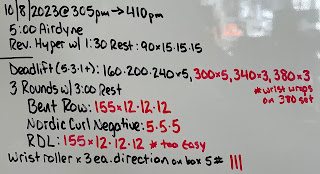 10/8/2023@305pm→410pm
5:00 Airdyne
Rev. Hyper w/ 1:30 Rest: 90×15·15·15
Deadlift(5·3·1+): 160·200·240×5, 300×5, 340×3, 380×3
3 Rounds w/ 3:00 Rest
* wrist wraps
on 380 set
Bent Row: 155×12·12·12
Nordic Curl Negative: 5·5·5
RDL: 155×12·12·12 * too Easy
Wrist roller × 3 ea. direction on box 5# |||